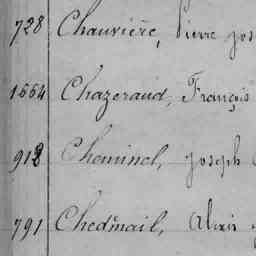 728 Chauvière, Pierre Jos
1664 Chazeraud, François
912 Cheminel, Joseph
791 Chedmail, Alexis